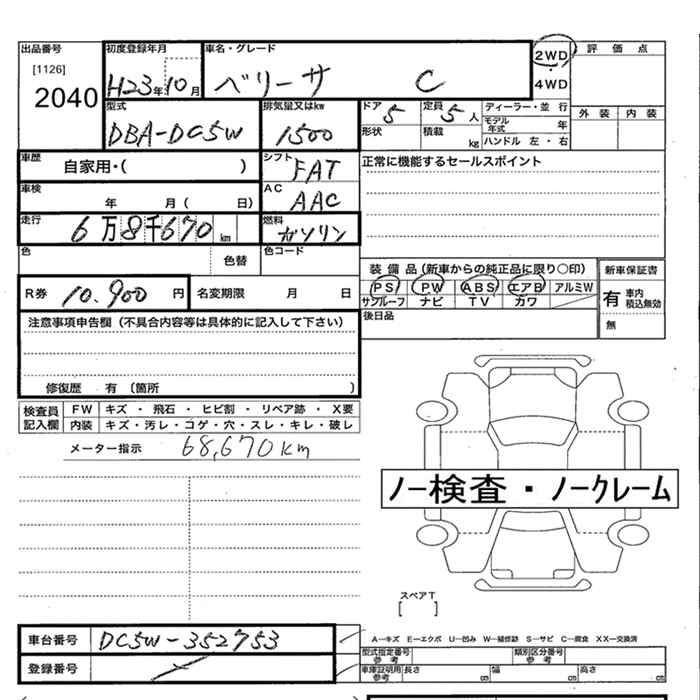 出品番号 初度登録年月 車名・グレード 2WD 評 価 点
[1126] 2040 H23年10月 ベリーサ C ・ 4WD
型式 排気量又はkw ドア 5 定員 5 人 ディーラー・並 行 外 装 内 装
DBA-DC5W 1500 形状 積載 kg モデル年式 年
ハンドル 左 ・ 右
車歴 自家用・( ) シフト FAT 正常に機能するセールスポイント
車検 年 月 ( 日) AC AAC
走行 6万8千670km 燃料 ガソリン
色 色替 色コード
装 備 品 (新車からの純正品に限り〇印) 新車保証書
R券 10.900 円 名変期限 月 日 PS PW ABS エアB アルミW 有 車内 積込無効
サンルーフ ナビ TV カワ
注意事項申告欄 (不具合内容等は具体的に記入して下さい) 後日品 無
修復歴 有 〔箇所 〕
検査員記入欄 FW キズ ・ 飛石 ・ ヒビ割 ・ リペア跡 ・ X要
内装 キズ・汚レ・コゲ・穴・スレ・キレ・破レ
メーター指示 68,670km
ノー検査・ノークレーム
スペアT
[ ]
車台番号 DC5W-352753
A―キズ E―エクボ U―凹み W―補修跡 S―サビ C―腐食 XX―交換済
型式指定番号 参考 類別区分番号 参考
登録番号 車庫証明用 参考 長さ cm 幅 cm 高さ cm